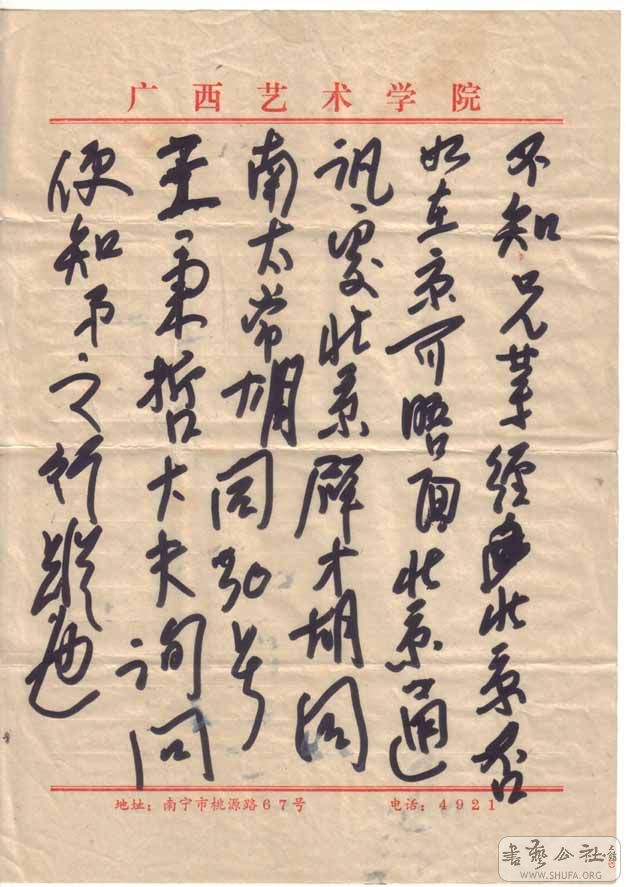 广西艺术学院
不知兄辈经北京否
如在京可晤面北京通
讯处北京辟才胡同
南太常胡同30号
王秉哲大夫询问
便知弟之行踪也
地址：南宁市桃源路67号
电话：4921
书艺公社
WWW.SHUFA.ORG